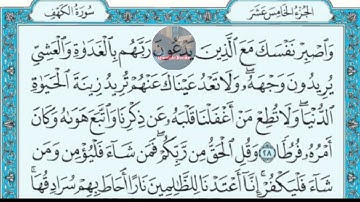 سُورَةُ الكَهْفِ
الجُزْءُ الخَامِسَ عَشَرَ
وَٱصْبِرْ نَفْسَكَ مَعَ ٱلَّذِينَ يَدْعُونَ رَبَّهُم بِٱلْغَدَوٰةِ وَٱلْعَشِىِّ
يُرِيدُونَ وَجْهَهُۥ وَلَا تَعْدُ عَيْنَاكَ عَنْهُمْ تُرِيدُ زِينَةَ ٱلْحَيَوٰةِ
ٱلدُّنْيَا وَلَا تُطِعْ مَنْ أَغْفَلْنَا قَلْبَهُۥ عَن ذِكْرِنَا وَٱتَّبَعَ هَوَىٰهُ وَكَانَ
أَمْرُهُۥ فُرُطًا ٢٨ وَقُلِ ٱلْحَقُّ مِن رَّبِّكُمْ فَمَن شَآءَ فَلْيُؤْمِن وَمَن
شَآءَ فَلْيَكْفُرْ إِنَّآ أَعْتَدْنَا لِلظَّٰلِمِينَ نَارًا أَحَاطَ بِهِمْ سُرَادِقُهَا